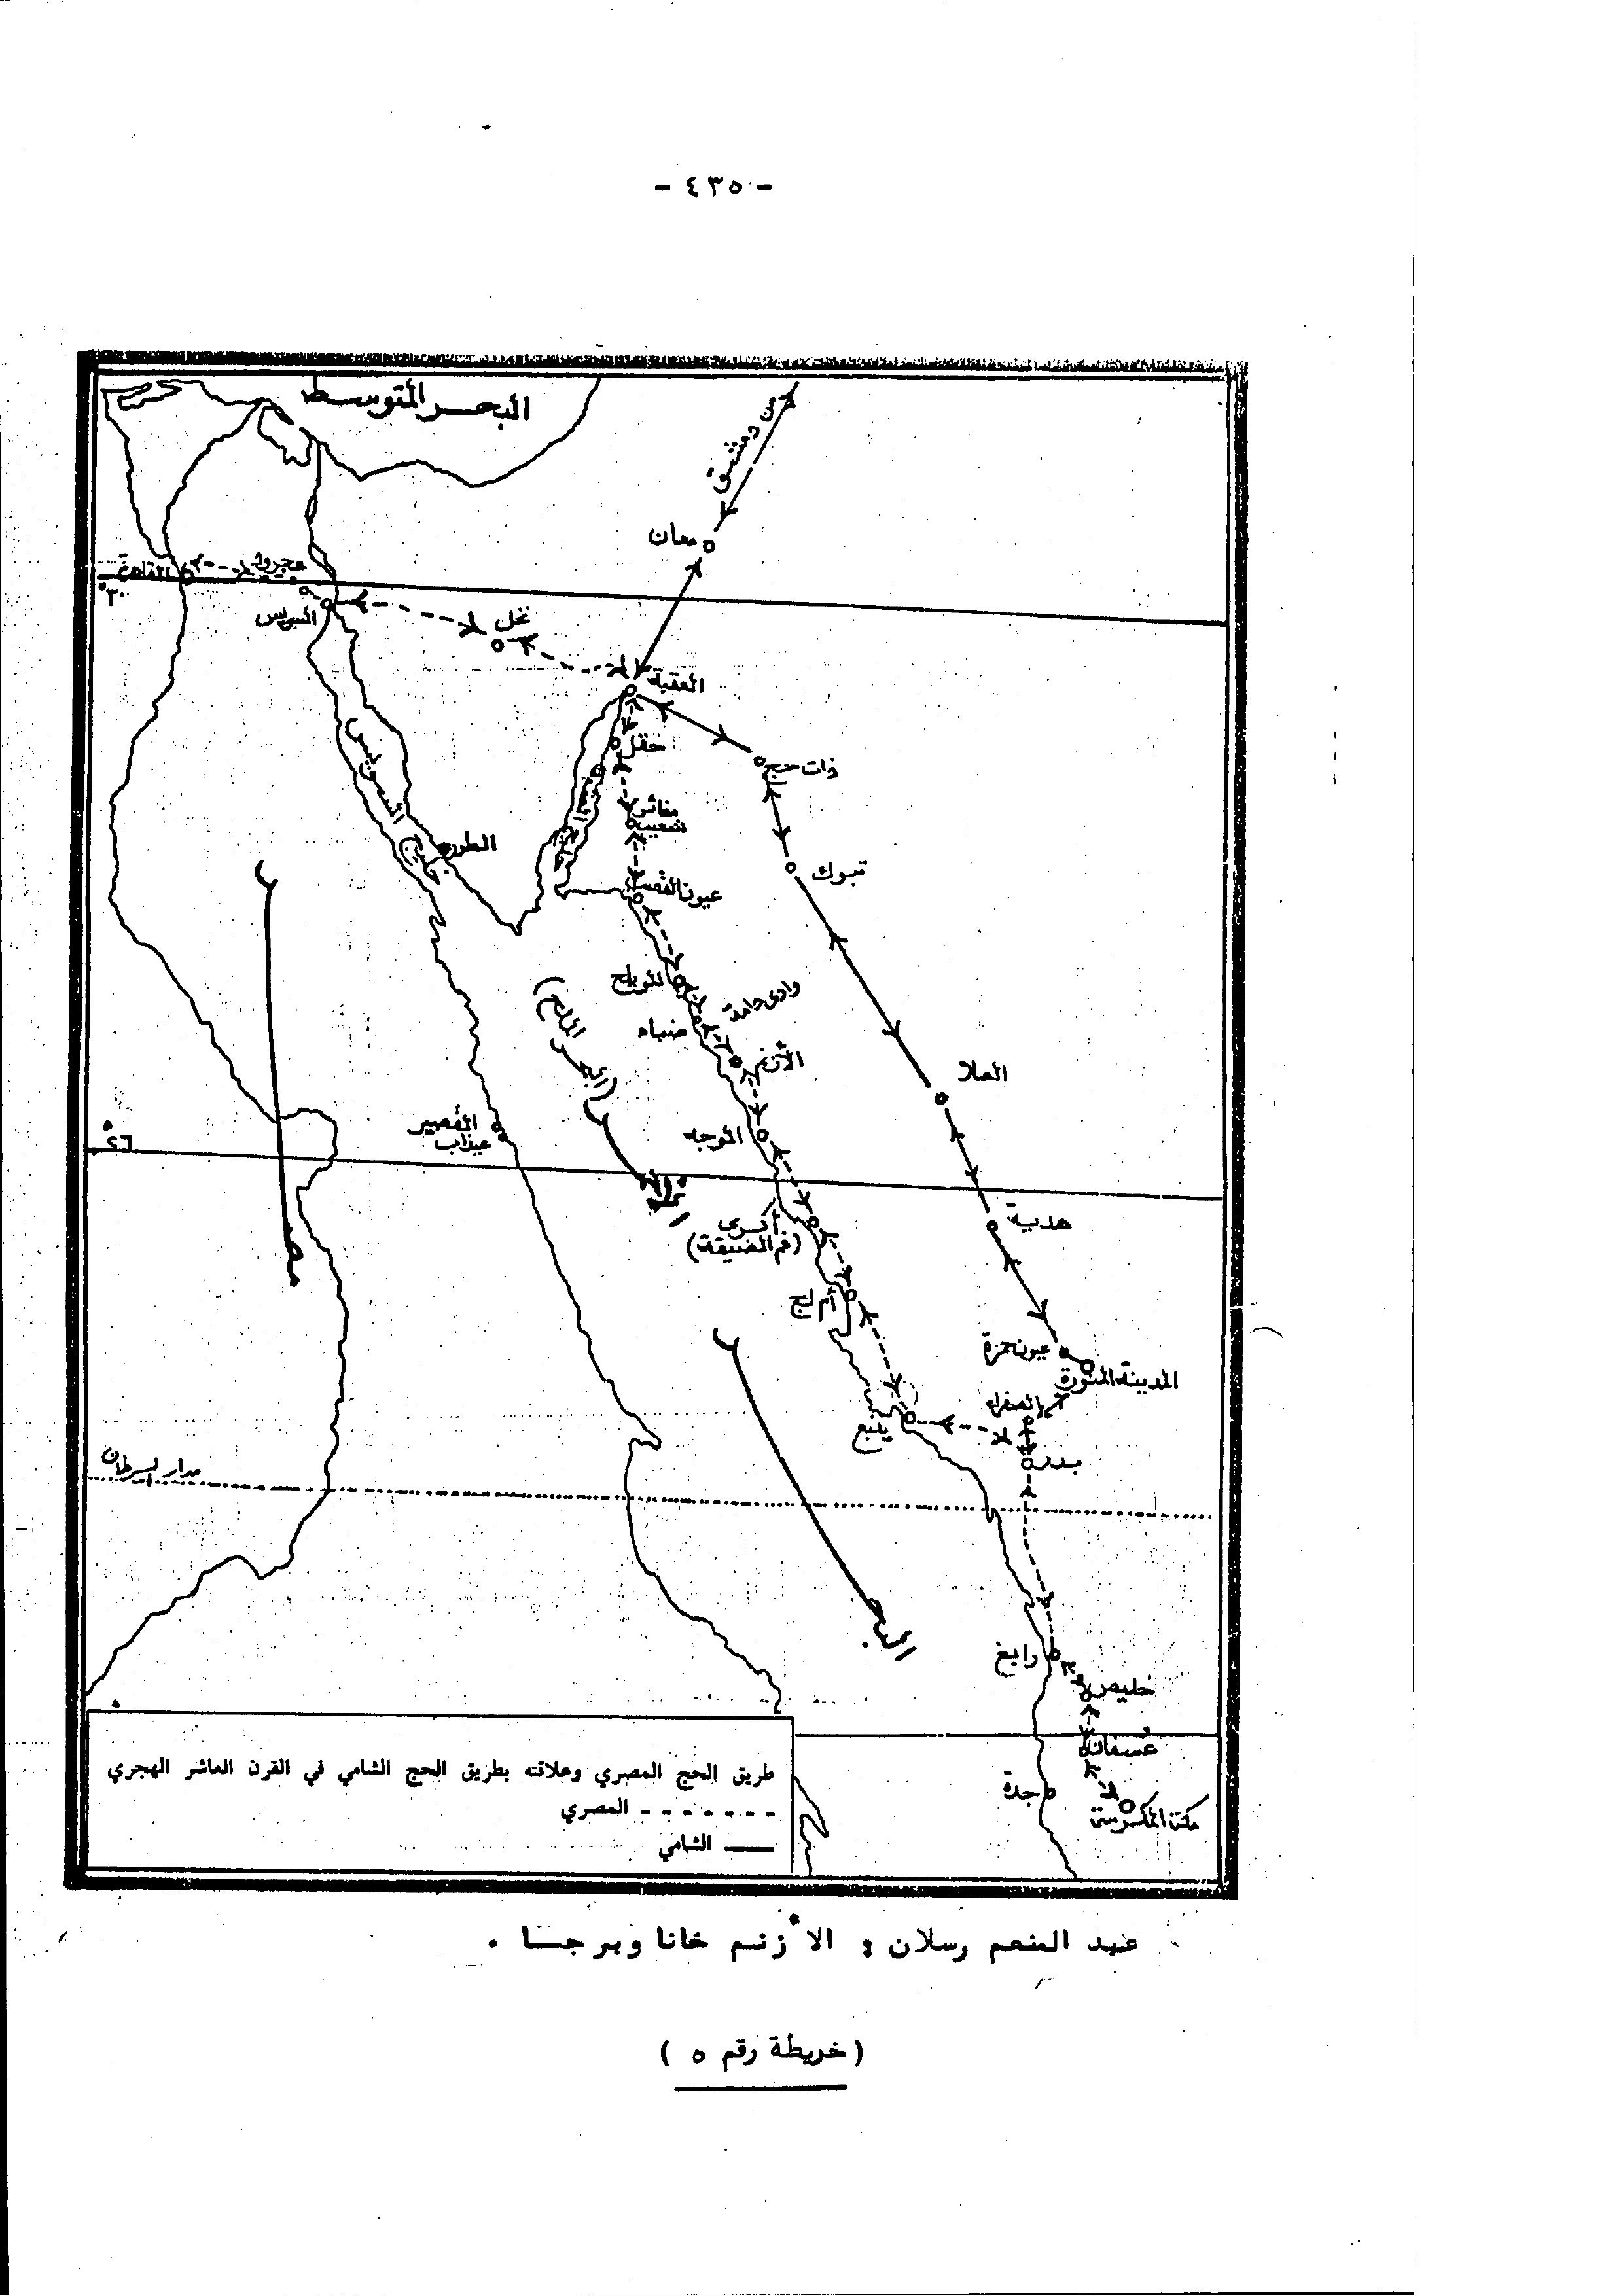 - ٤٣٥ -
البحر المتوسط
من دمشق
معان
القاهرة
عجرود
٣٠°
السويس
نخل
العقبة
حقل
ذات حج
السويس
خليج
الطور
مغائر
شعيب
تبوك
عيون القصب
المويلح
وادي دامة
ضباء
الأزنم
العلا
البحر
(المالح)
القصير
عيذاب
الوجه
٢٦°
القلزم
مصر
أكرى
(فم الضيقة)
هدية
أم لج
عيون حمزة
المدينة المنورة
الصفراء
ينبع
بدر
مدار السرطان
رابغ
خليص
عسفان
جدة
مكة المكرمة
طريق الحج المصري وعلاقته بطريق الحج الشامي في القرن العاشر الهجري
- - - - - - - المصري
—— الشامي
عبد المنعم رسلان : الأزنم خانا وبرجا .
( خريطة رقم ٥ )